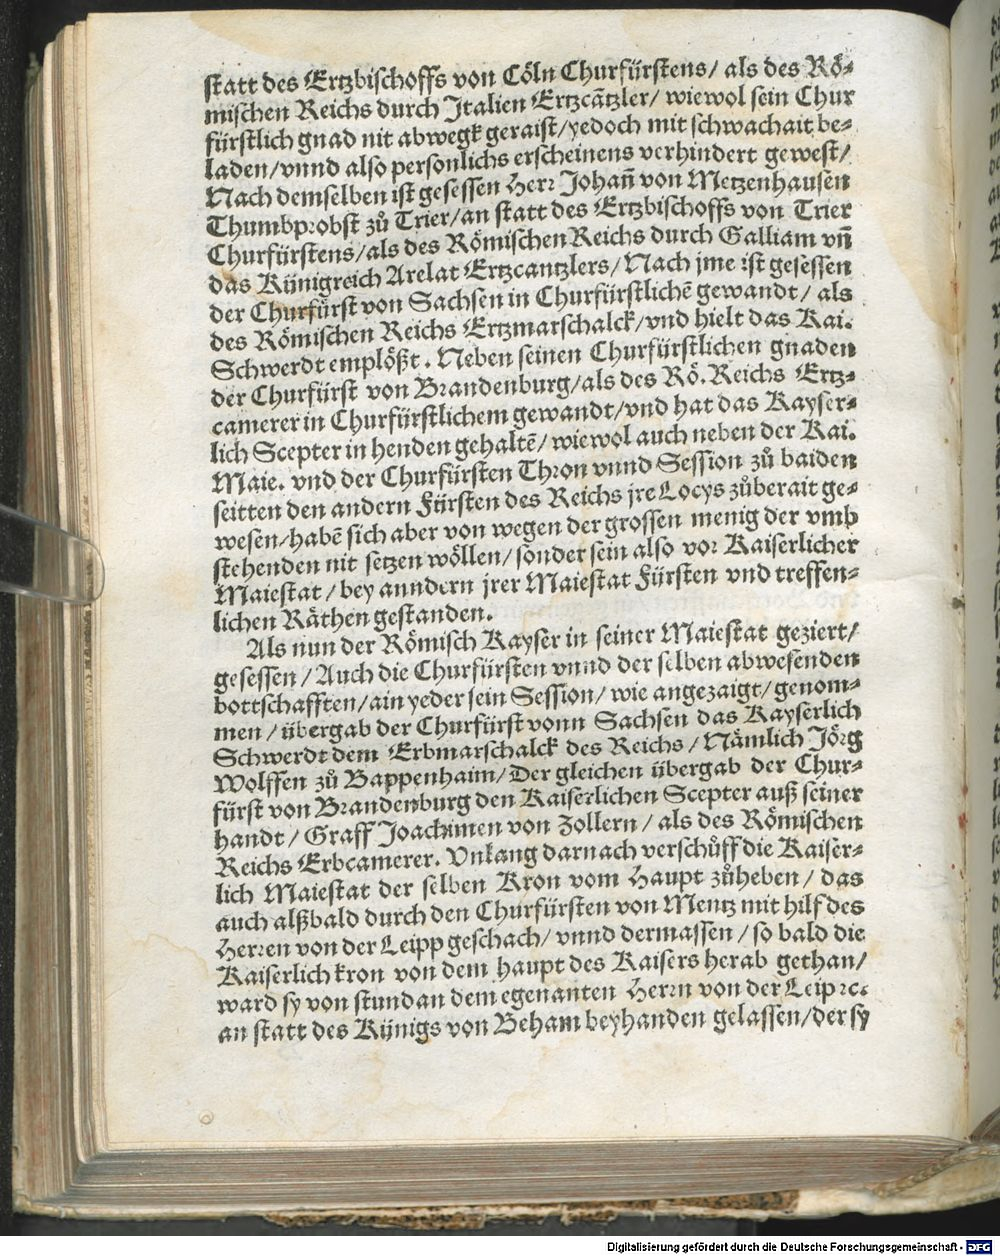 statt des Ertzbischoffs von Cöln Churfürstens/ als des Rö⸗
mischen Reichs durch Italien Ertzcãtzler/ wiewol sein Chur
fürstlich gnad nit abwegk geraist/yedoch mit schwachait be⸗
laden/vnnd also personlichs erscheinens verhindert gewest/
Nach demselben ist gesessen Herr Johañ von Metzenhausen
Thumbprobst zů Trier/an statt des Ertzbischoffs von Trier
Churfürstens/als des Römischen Reichs durch Galliam vñ
das Künigreich Arelat Ertzcantzlers/Nach jme ist gesessen
der Churfürst von Sachsen in Churfürstlichẽ gewandt/ als
des Römischen Reichs Ertzmarschalck/vnd hielt das Kai.
Schwerdt emplößt. Neben seinen Churfürstlichen gnaden
der Churfürst von Brandenburg/als des Rö. Reichs Ertz⸗
camerer in Churfürstlichem gewandt/vnd hat das Kayser⸗
lich Scepter in henden gehaltẽ/ wiewol auch neben der Kai.
Maie. vnd der Churfürsten Thron vnnd Session zů baiden
seitten den andern Fürsten des Reichs jre Locys zůberait ge⸗
wesen/habẽ sich aber von wegen der grossen menig der vmb
stehenden nit setzen wöllen/sonder sein also vor Kaiserlicher
Maiestat/bey anndern jrer Maiestat Fürsten vnd treffen⸗
lichen Räthen gestanden.
Als nun der Römisch Kayser in seiner Maiestat geziert/
gesessen/Auch die Churfürsten vnnd der selben abwesenden
bottschafften/ain yeder sein Session/wie angezaigt/genom⸗
men/übergab der Churfürst vonn Sachsen das Kayserlich
Schwerdt dem Erbmarschalck des Reichs/Nämlich Jörg
Wolffen zů Bappenhaim/Der gleichen übergab der Chur⸗
fürst von Brandenburg den Kaiserlichen Scepter auß seiner
handt/Graff Joachimen von Zollern/als des Römischen
Reichs Erbcamerer. Vnlang darnach verschůff die Kaiser⸗
lich Maiestat der selben Kron vom Haupt zůheben/das
auch alßbald durch den Churfürsten von Mentz mit hilf des
Herren von der Leipp geschach/vnnd dermassen/so bald die
Kaiserlich kron von dem haupt des Kaisers herab gethan/
ward sy von stundan dem egenanten Herrn von der Leip ꝛc.
an statt des Künigs von Beham beyhanden gelassen/der sy
Digitalisierung gefördert durch die Deutsche Forschungsgemeinschaft - DFG